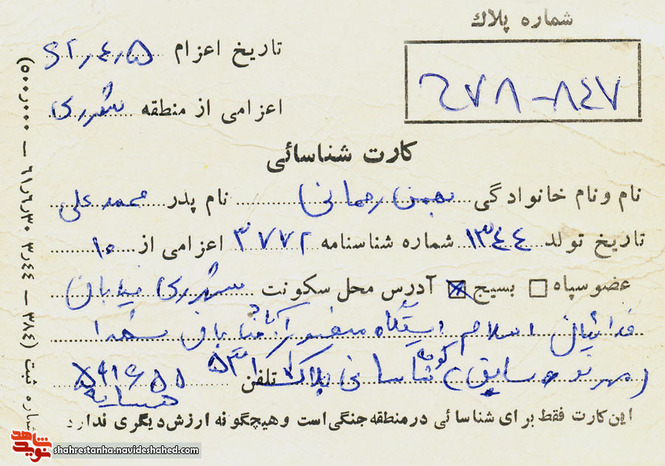 شماره پلاک
تاریخ اعزام ۶۲٫۴٫۵
۸۴۷-۲۷۸
اعزامی از منطقه شهرری
کارت شناسائی
نام ونام خانوادگی بهمن رحمانی نام پدر محمد علی
تاریخ تولد ۱۳۴۴ شماره شناسنامه ۳۷۷۲ اعزامی از ۱۰
عضو سپاه بسیج آدرس محل سکونت شهرری خیابان
فدائیان اسلام ایستگاه منصورآباد خیابان شهدا
(مهرنو سابق) کوچه کاسانی پلاک ۵۳۱ تلفن ۵۹۱۶۵۱۱
همسایه
این کارت فقط برای شناسائی در منطقه جنگی است و هیچگونه ارزش دیگری ندارد
شماره ثبت (۳۸۴ — ۳٫۴۴ — ۶۱٫۶٫۳۰ — ۵۰۰٫۰۰۰)
شاهد
نوید
shahrestanha.navideshahed.com